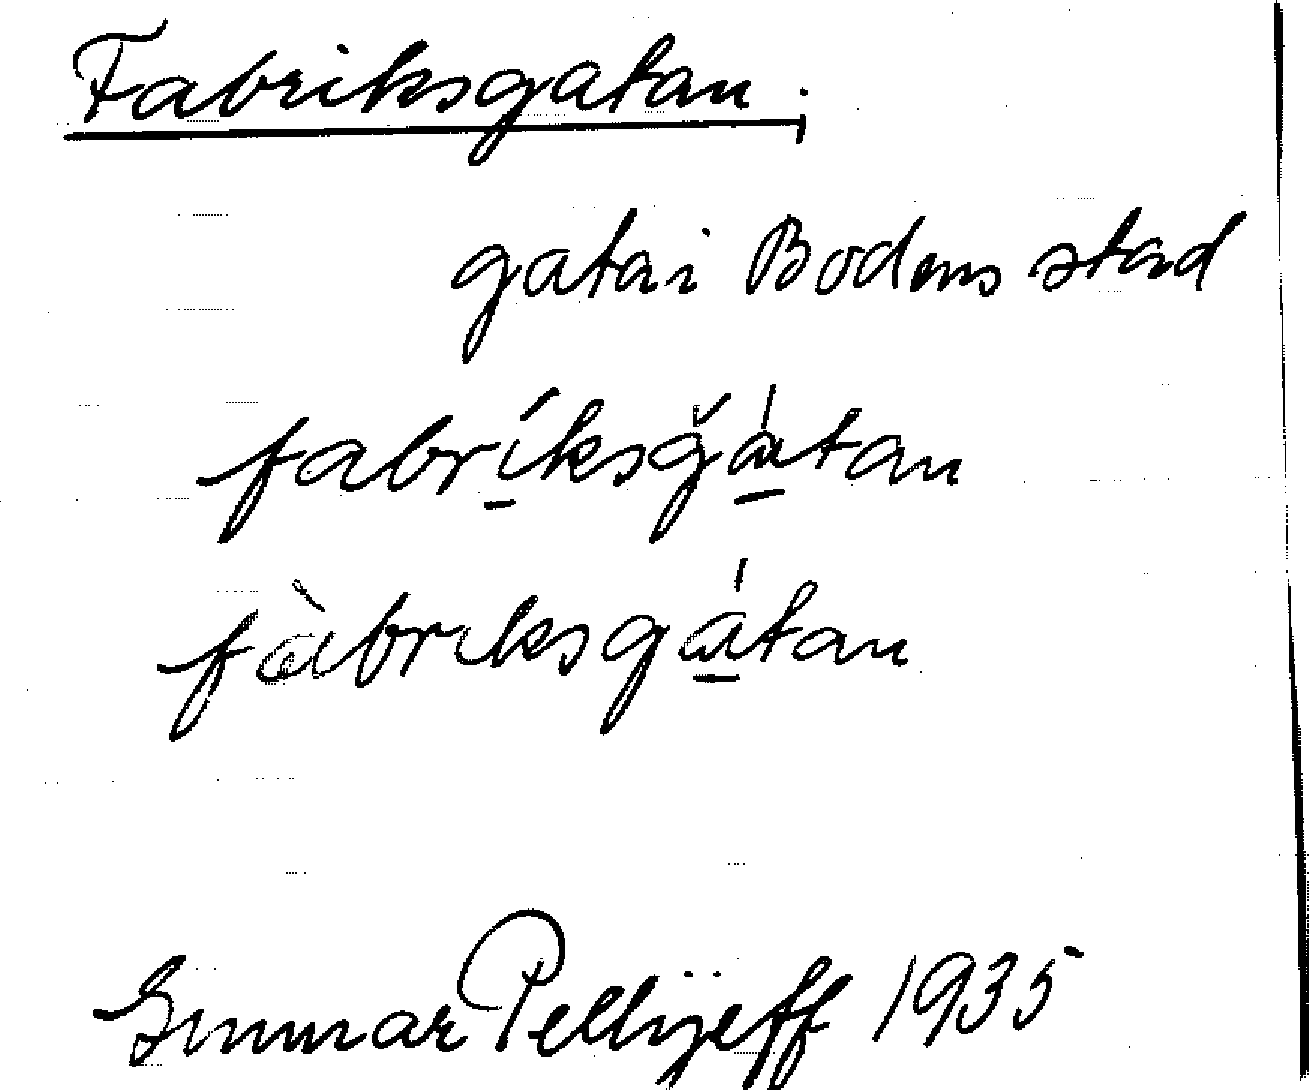 Fabriksgatan.
gata i Bodens stad
fabríksgátan
fàbriksgátan
Gunnar Pellijeff 1935